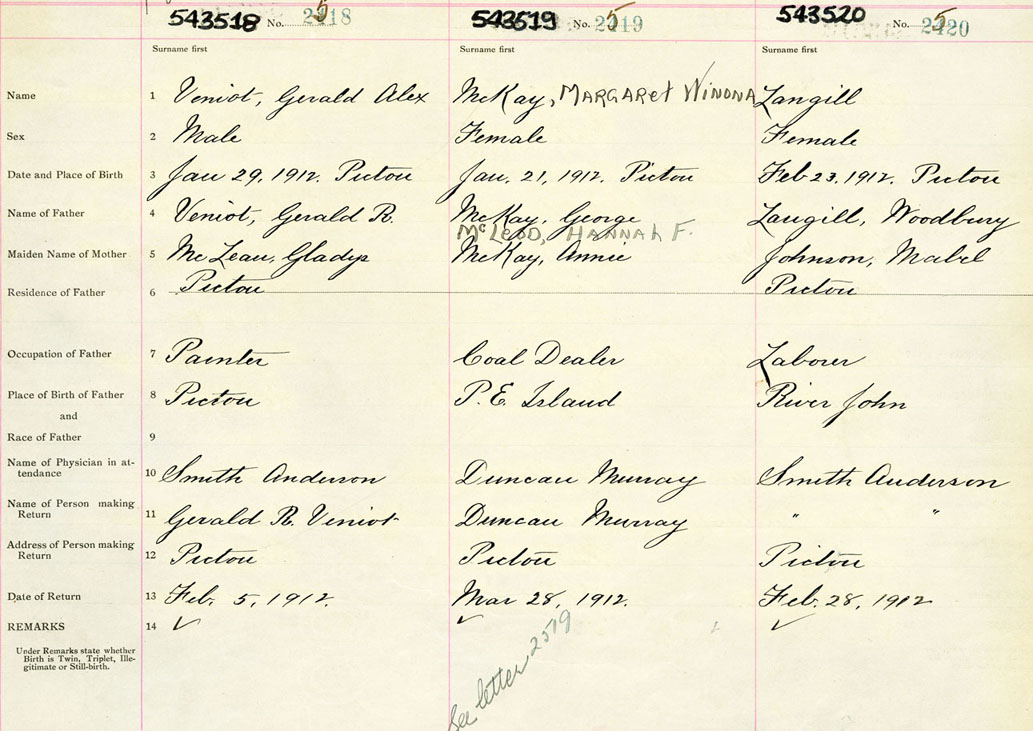 543518 No. 2518 543519 No. 2519 543520 No. 2520
Surname first Surname first Surname first
Name 1 Veniot, Gerald Alex McKay, MARGARET WINONA Langill
Sex 2 Male Female Female
Date and Place of Birth 3 Jan 29, 1912. Pictou Jan. 21, 1912. Pictou Feb 23, 1912. Pictou
Name of Father 4 Veniot, Gerald R. McKay, George Langill, Woodbury
McLEOD, HANNAH F.
Maiden Name of Mother 5 McLean, Gladys McKay, Annie Johnson, Mabel
Residence of Father 6 Pictou Pictou
Occupation of Father 7 Painter Coal Dealer Laborer
Place of Birth of Father 8 Pictou P.E. Island River John
and
Race of Father 9
Name of Physician in at-
tendance 10 Smith Anderson Duncan Murray Smith Anderson
Name of Person making
Return 11 Gerald R. Veniot Duncan Murray " "
Address of Person making
Return 12 Pictou Pictou Pictou
Date of Return 13 Feb. 5, 1912. Mar 28, 1912. Feb. 28, 1912
REMARKS 14 ✓ ✓ ✓
Under Remarks state whether
Birth is Twin, Triplet, Ille-
gitimate or Still-birth.
See letter 2519